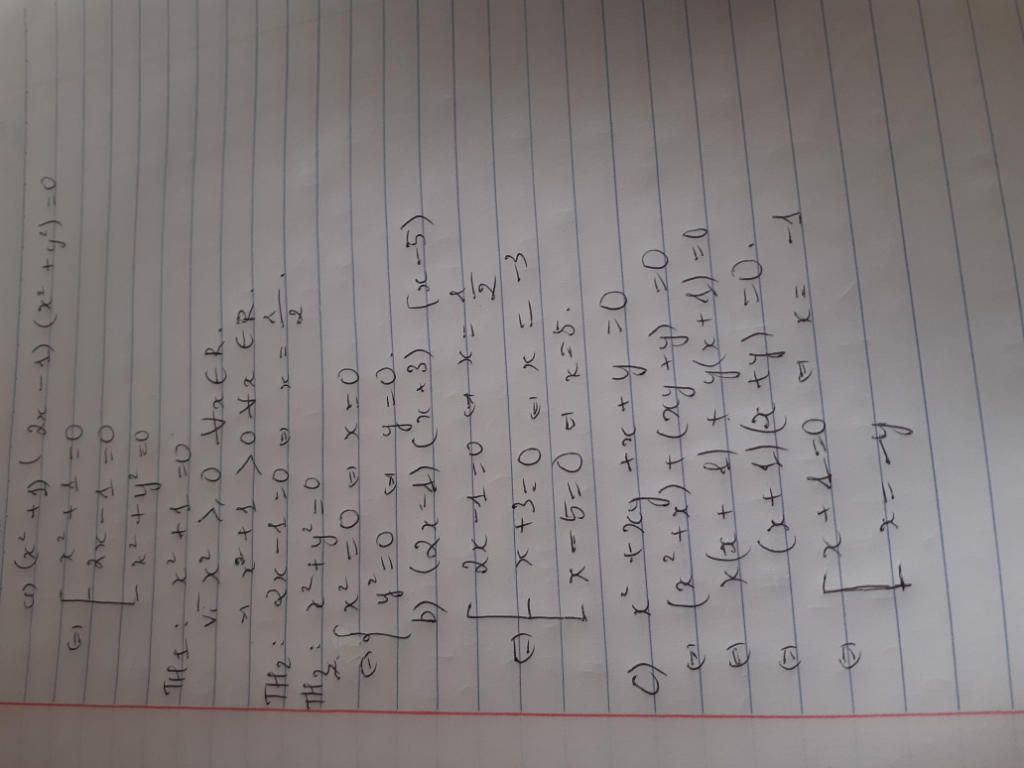 a) (x² + 1) (2x - 1) (x² + y²) = 0
⇔ [ x² + 1 = 0
2x - 1 = 0
x² + y² = 0
TH1: x² + 1 = 0
Vì x² ≥ 0 ∀x ∈ R.
→ x² + 1 > 0 ∀x ∈ R.
TH2: 2x - 1 = 0 ⇔ x = 1/2.
TH3: x² + y² = 0
⇔ { x² = 0 ⇔ x = 0
y² = 0 ⇔ y = 0.
b) (2x - 1) (x + 3) (x - 5)
2x - 1 = 0 ⇔ x = 1/2
⇔ [ x + 3 = 0 ⇔ x = -3
x - 5 = 0 ⇔ x = 5.
c) x² + xy + x + y = 0
⇔ (x² + x) + (xy + y) = 0
⇔ x(x + 1) + y(x + 1) = 0
⇔ (x + 1)(x + y) = 0.
⇔ [ x + 1 = 0 ⇔ x = -1
x = -y